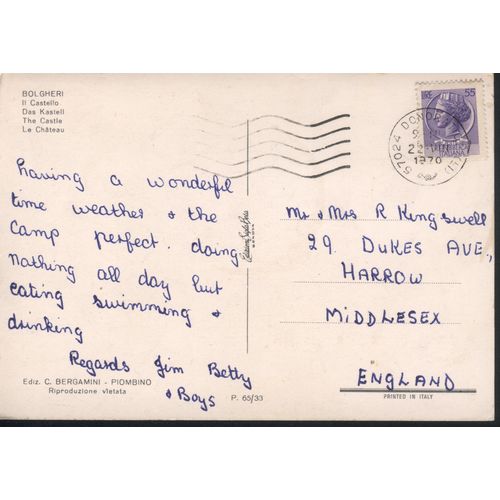 BOLGHERI
Il Castello
Das Kastell
The Castle
Le Château
LIRE 55
ITALIANA
57024 DONOR
22
1970
(LI)
having a wonderful
time weather & the
Camp perfect. doing
nothing all day but
eating swimming &
drinking
Regards Jim Betty
& Boys
Mr & Mrs R Kingswell
29, DUKES AVE,
HARROW
MIDDLESEX
ENGLAND.
Ediz. C. BERGAMINI - PIOMBINO
Riproduzione vietata
P. 65/33
PRINTED IN ITALY